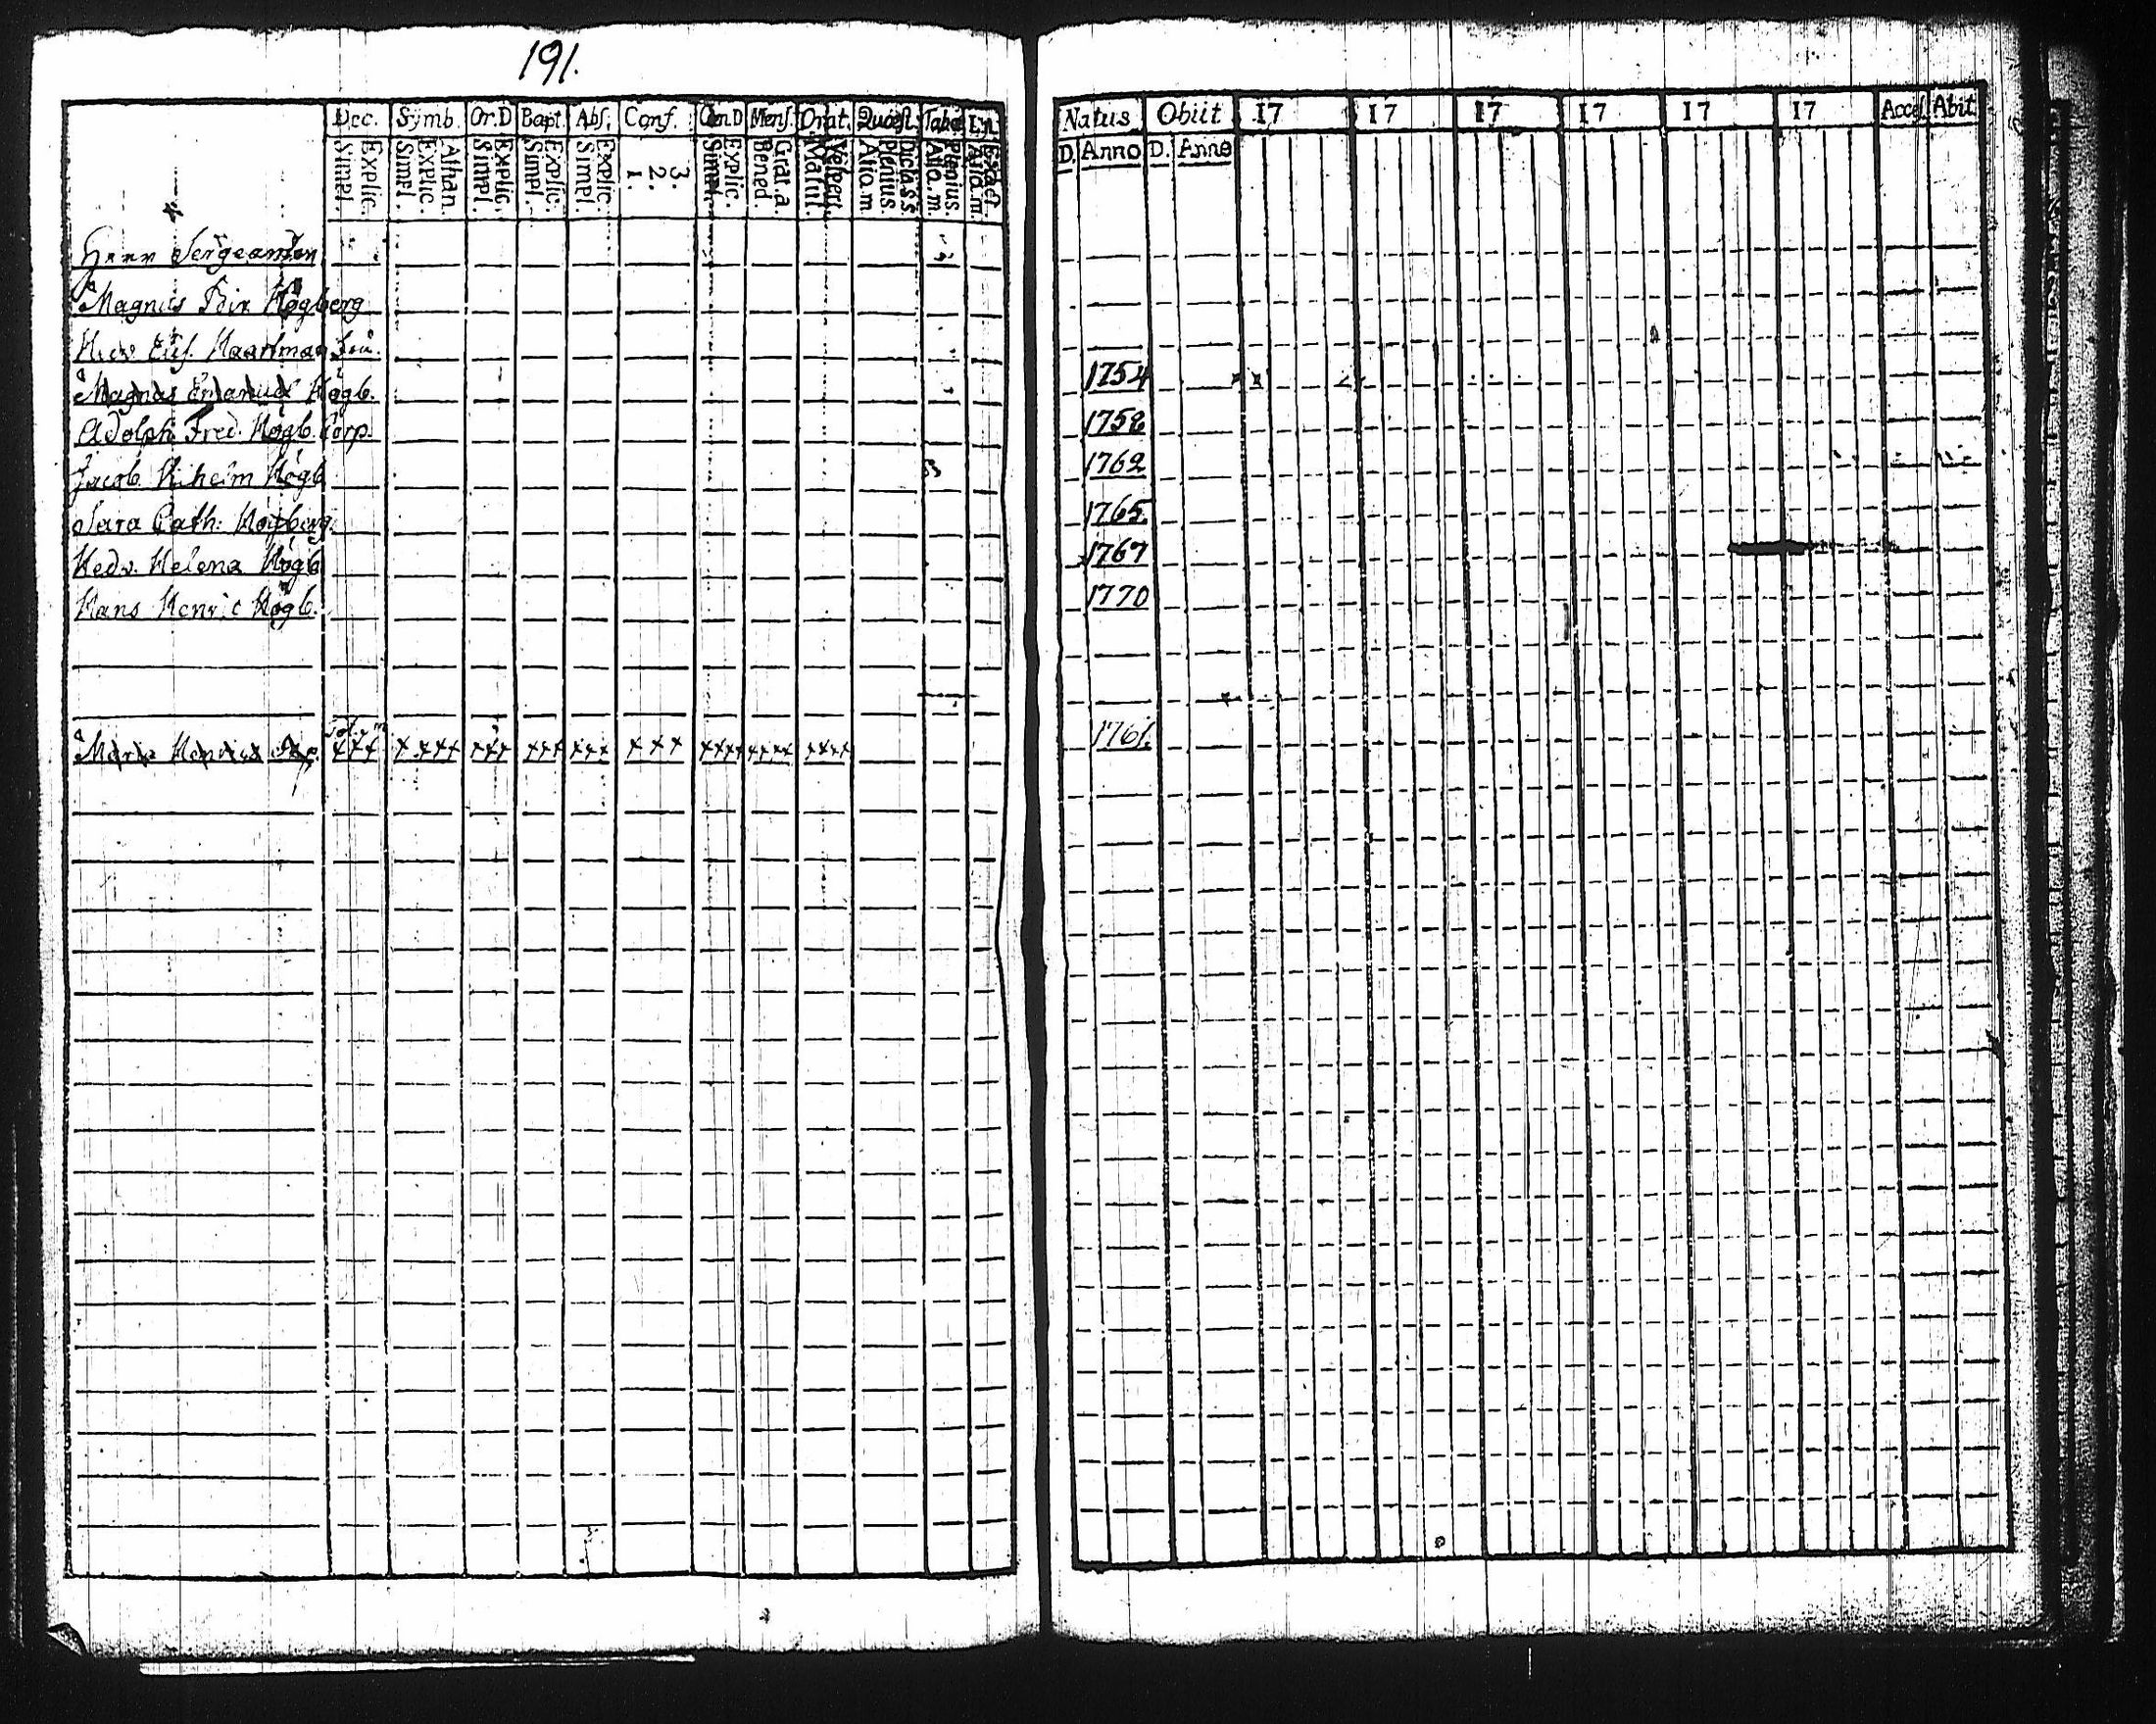 191.
Dec. Symb. Or.D Bapt. Abs. Conf. Cœn.D Mens. Orat. Quæst. Tabæ
Explic. Simpl. Athan. Explic. Simpl. Explic. Simpl. Explic. Simpl. Explic. Simpl. 3. 2. 1. Explic. Simpl. Grat. a. Bened. Vespert. Matut. Dicta S.S. Plenius. Aliq. m. Plenius. Aliq. m. Exact. Aliq. m.
Natus Obiit 17 17 17 17 17 17 Acces. Abit
D. Anno D. Anno
Herr Sergeanten
Magnus Högberg
Haartman
Magnus Emanuel Högb. 1754
Adolph Fred. Högb. Corp. 1758
Jacob Wilhelm Högb 1762
Sara Cath. Högberg. 1765.
Hedv. Helena Högb 1767
Hans Henric Högb. 1770
Maria 1761.